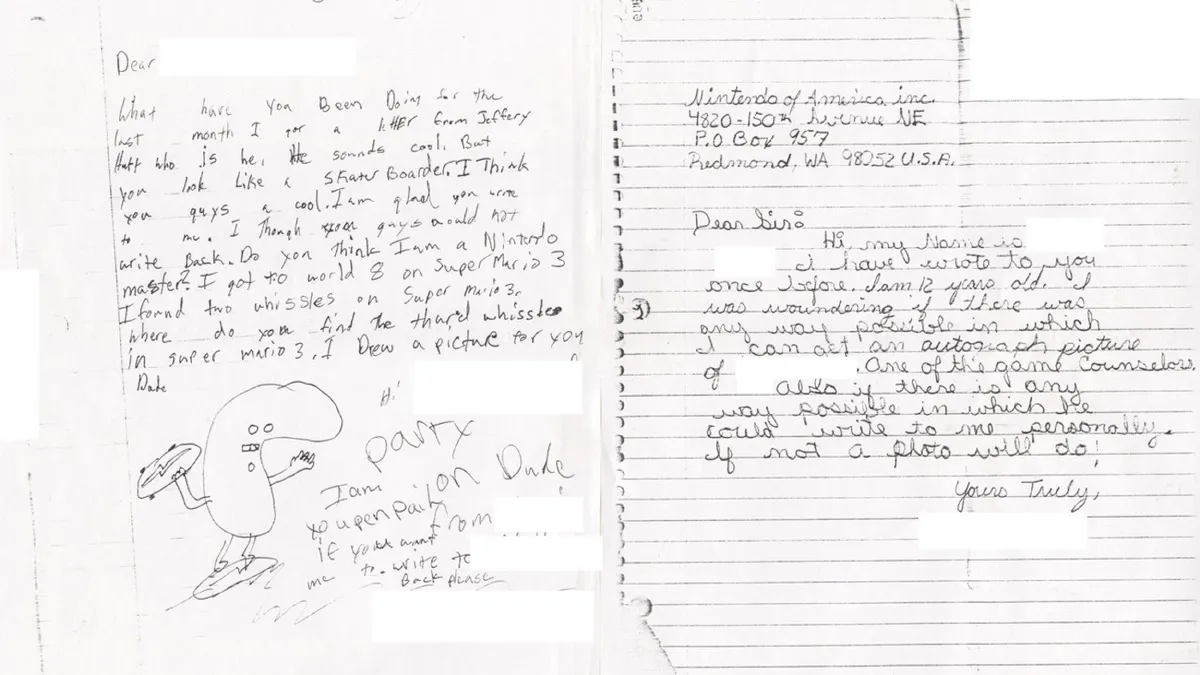 Dear
What have you Been Doing for the
last month I got a letter from Jeffery
Hutt who is he. He sounds cool. But
you look Like a Skater Boarder. I Think
you guys a cool. I am glad you write
to me. I though your guys would not
write Back. Do you Think I am a Nintendo
master? I got to world 8 on Super Mario 3
I found two whissles on Super Mario 3.
where do you find The thard whissle
in super mario 3. I Drew a picture for you
Dude
Hi
party
on Dude
I am
you pen
from
if you want
me to write to
Back please
Nintendo of America inc.
4820-150th Avenue NE
P.O Box 957
Redmond, WA 98052 U.S.A.
Dear Sir:
Hi, my Name is
I have wrote to you
once before. I am 12 years old. I
was woundering if there was
any way possible in which
I can get an autograph picture
of . One of the game Counselors.
Also if there is any
way possible in which he
could write to me personally.
If not a photo will do!
Yours Truly,